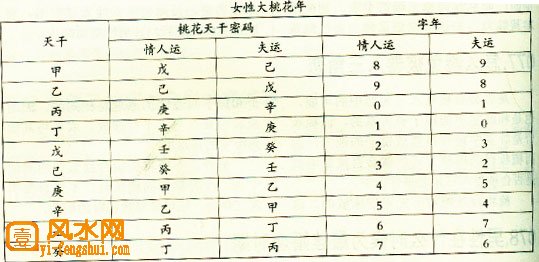 女性大桃花年
天干 桃花天干密码 字年
情人运 夫运 情人运 夫运
甲 戊 己 8 9
乙 己 戊 9 8
丙 庚 辛 0 1
丁 辛 庚 1 0
戊 壬 癸 2 3
己 癸 壬 3 2
庚 甲 乙 4 5
辛 乙 甲 5 4
丙 丁 6 7
癸 丁 丙 7 6
壹 风水网
yi.fengshui.com